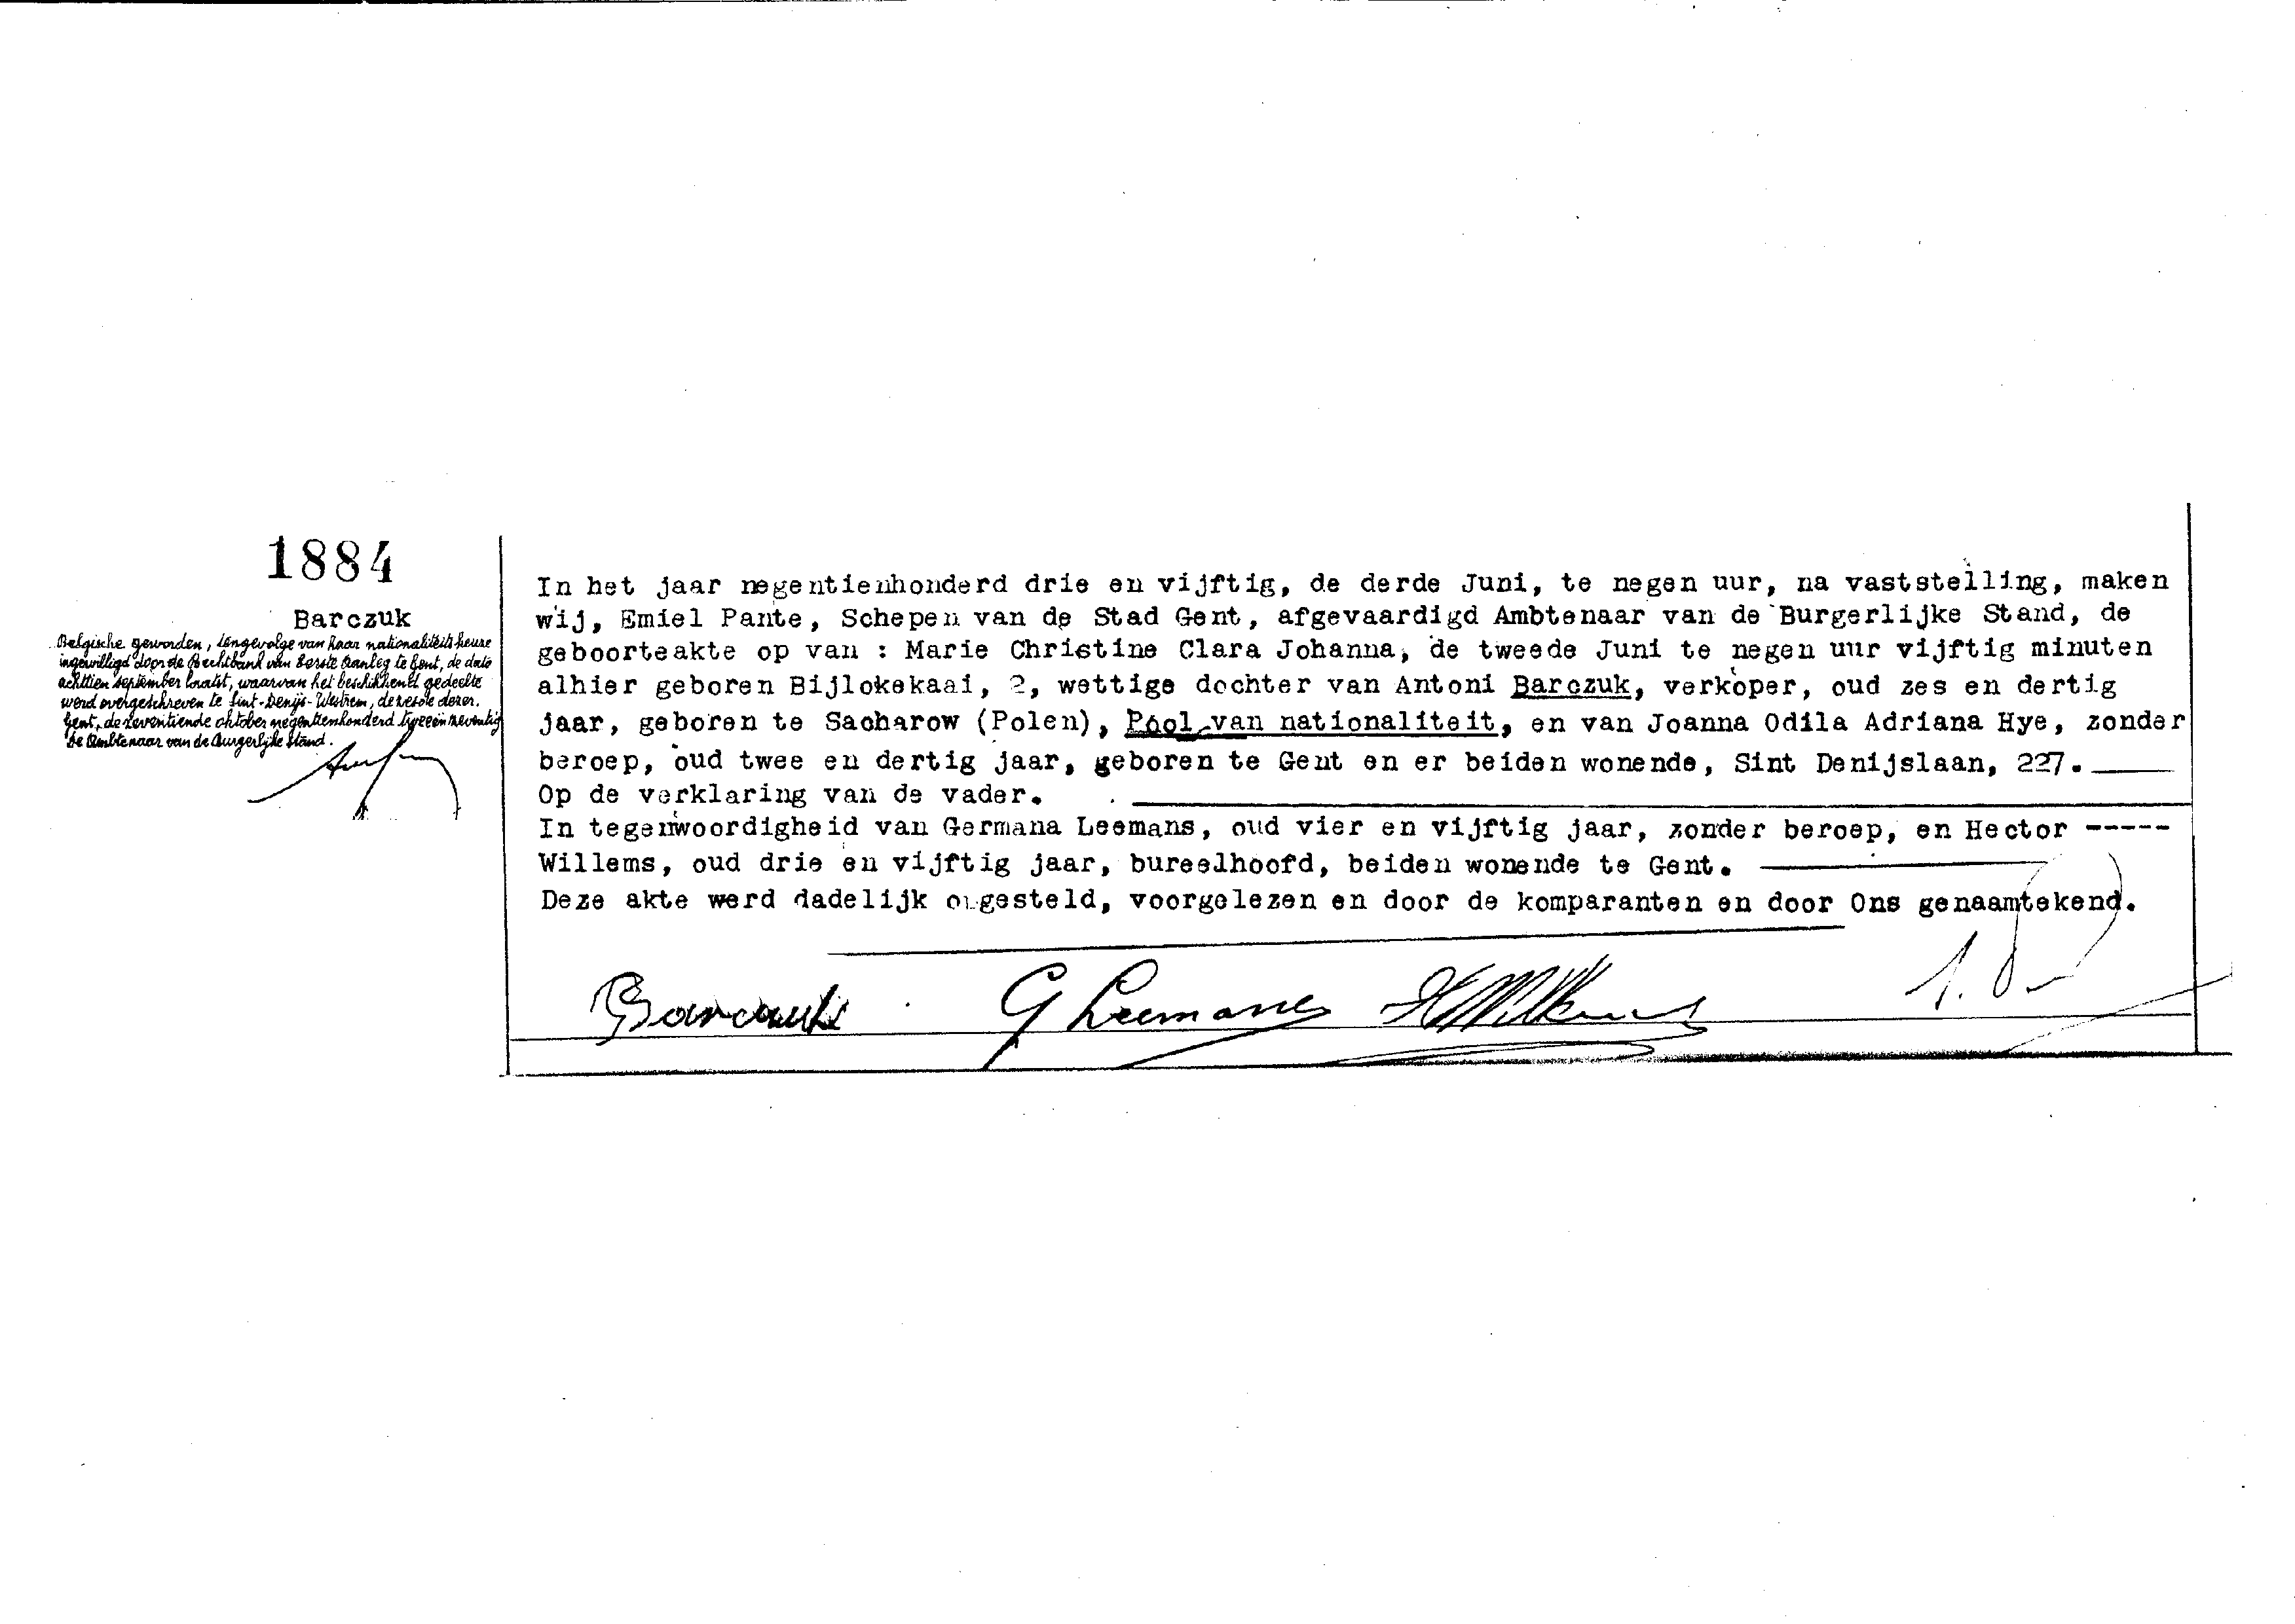 1884
Barczuk
Belgische geworden, tengevolge van haar nationaliteitskeuze
ingewilligd door de Rechtbank van Eerste Aanleg te Gent, de dato
achttien september laatst, waarvan het beschikkend gedeelte
werd overgeschreven te Sint-Denijs-Westrem, de zesde dezer.
Gent, de zeventiende oktober negentienhonderd
De Ambtenaar van de Burgerlijke Stand.
In het jaar negentienhonderd drie en vijftig, de derde Juni, te negen uur, na vaststelling, maken
wij, Emiel Pante, Schepen van de Stad Gent, afgevaardigd Ambtenaar van de Burgerlijke Stand, de
geboorteakte op van : Marie Christine Clara Johanna, de tweede Juni te negen uur vijftig minuten
alhier geboren Bijlokekaai, 2, wettige dochter van Antoni Barczuk, verkoper, oud zes en dertig
jaar, geboren te Sacharow (Polen), Pool van nationaliteit, en van Joanna Odila Adriana Hye, zonder
beroep, oud twee en dertig jaar, geboren te Gent en er beiden wonende, Sint Denijslaan, 227.
Op de verklaring van de vader.
In tegenwoordigheid van Germana Leemans, oud vier en vijftig jaar, zonder beroep, en Hector -----
Willems, oud drie en vijftig jaar, bureelhoofd, beiden wonende te Gent.
Deze akte werd dadelijk opgesteld, voorgelezen en door de komparanten en door Ons genaamtekend.
Barczuk G Leemans HWillems